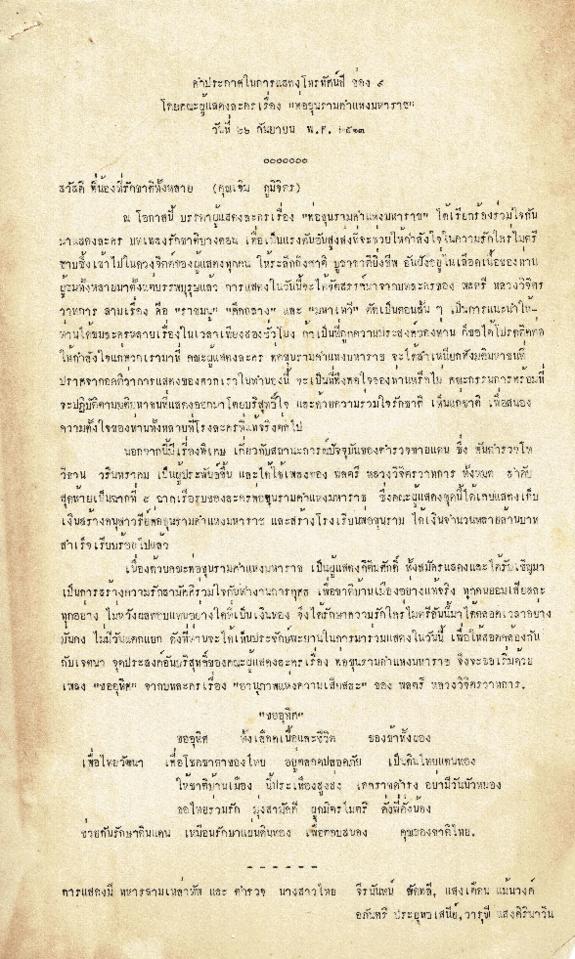 คำประกาศในการแสดงโทรทัศน์สี ช่อง ๙
โดยคณะผู้แสดงละครเรื่อง "พ่อขุนรามคำแหงมหาราช"
วันที่ ๒๖ กันยายน พ.ศ. ๒๕๑๓
สวัสดี พี่น้องที่รักชาติทั้งหลาย (คุณเชิน ภูมิจิตร)
ณ โอกาสนี้ บรรดาผู้แสดงละครเรื่อง "พ่อขุนรามคำแหงมหาราช" ได้เรียกร้องร่วมใจกัน
มาแสดงละคร บทเพลงรักชาติบางตอน เพื่อเป็นแรงดันอันสูงส่งที่จะช่วยให้กำลังใจในความรักใคร่ไมตรี
ซาบซึ้งเข้าไปในดวงจิตต์ของผู้แสดงทุกคน ให้ระลึกถึงชาติ บูชาชาติยิ่งชีพ อันยังอยู่ในเลือดเนื้อของท่าน
ผู้ชมทั้งหลายมาตั้งแต่บรรพบุรุษแล้ว การแสดงในวันนี้จะได้จัดสรรมาจากบทละครของ พลตรี หลวงวิจิตร
วาทการ สามเรื่อง คือ "ราชมนู" "ศึกถลาง" และ "มหาเทวี" ตัดเป็นตอนสั้น ๆ เป็นการแนะนำให้-
ท่านได้ชมละครหลายเรื่องในเวลาเพียงสองชั่วโมง ถ้าเป็นที่ถูกความประสงค์ของท่าน ก็ขอได้โปรดติดต่อ
ให้กำลังใจแก่พวกเรามาที่ คณะผู้แสดงละคร พ่อขุนรามคำแหงมหาราช จะได้สำเหนียกฟังมติมหาชนที่
ปราศจากอคติว่าการแสดงของพวกเราในทำนองนี้ จะเป็นที่พึงพอใจของท่านหรือไม่ คณะกรรมการพร้อมที่
จะปฏิบัติตามมติมหาชนที่แสดงออกมาโดยบริสุทธิ์ใจ และด้วยความรวมใจรักชาติ เห็นแก่ชาติ เพื่อสนอง
ความตั้งใจของท่านทั้งหลายที่โรงละครที่แท้จริงต่อไป
นอกจากนี้มีเรื่องพิเศษ เกี่ยวกับสถานะการณ์ปัจจุบันของตำรวจชายแดน ซึ่ง พันตำรวจโท
วิชาน วรินทราคม เป็นผู้ประพันธ์ขึ้น และได้ใช้เพลงของ พลตรี หลวงวิจิตรวาทการ ทั้งหมด ลำดับ
สุดท้ายเป็นฉากที่ ๙ ฉากเรือรบของละครพ่อขุนรามคำแหงมหาราช ซึ่งคณะผู้แสดงชุดนี้ได้เคยแสดงเก็บ
เงินสร้างอนุสาวรีย์พ่อขุนรามคำแหงมหาราช และสร้างโรงเรียนพ่อขุนราม ได้เงินจำนวนหลายล้านบาท
สำเร็จเรียบร้อยไปแล้ว
เนื่องด้วยคณะพ่อขุนรามคำแหงมหาราช เป็นผู้แสดงกิติมศักดิ์ ทั้งสมัครแสดงและได้รับเชิญมา
เป็นการสร้างความรักสามัคคีร่วมใจกันทำงานการกุศล เพื่อชาติบ้านเมืองอย่างแท้จริง ทุกคนยอมเสียสละ
ทุกอย่าง ไม่หวังผลตอบแทนอย่างใดที่เป็นเงินทอง จึงได้รักษาความรักใคร่ไมตรีอันนี้มาได้ตลอดเวลาอย่าง
มั่นคง ไม่มีวันแตกแยก ดังที่ท่านจะได้เห็นประจักษ์พะยานในการมารวมแสดงในวันนี้ เพื่อให้สอดคล้องกัน
กับเจตนา จุดประสงค์อันบริสุทธิ์ของคณะผู้แสดงละครเรื่อง พ่อขุนรามคำแหงมหาราช จึงจะขอเริ่มด้วย
เพลง "ขออุทิศ" จากบทละครเรื่อง "อานุภาพแห่งความเสียสละ" ของ พลตรี หลวงวิจิตรวาทการ.
"ขออุทิศ"
ขออุทิศ ทั้งเลือดเนื้อและชีวิต ของข้าทั้งผอง
เพื่อไทยวัฒนา เพื่อโชคชาตาของไทย อยู่ตลอดปลอดภัย เป็นดินไทยแดนทอง
ให้ชาติบ้านเมือง นี้ประเทืองสูงส่ง เดชาราดำรง อย่ามีวันมัวหมอง
ขอไทยร่วมรัก มุ่งสามัคคี ผูกมิตรไมตรี ดั่งพี่ดั่งน้อง
ช่วยกันรักษาดินแดน เหมือนรักษาแผ่นดินทอง เพื่อตอบสนอง คุณของชาติไทย.
การแสดงมี ทหารสามเหล่าทัพ และ ตำรวจ นางสาวไทย จีรนันทน์ ,แสงเดือน แม้นวงศ์
อภันตรี ประยุทธเสนีย์,วารุฬี แสงศิรินาวิน